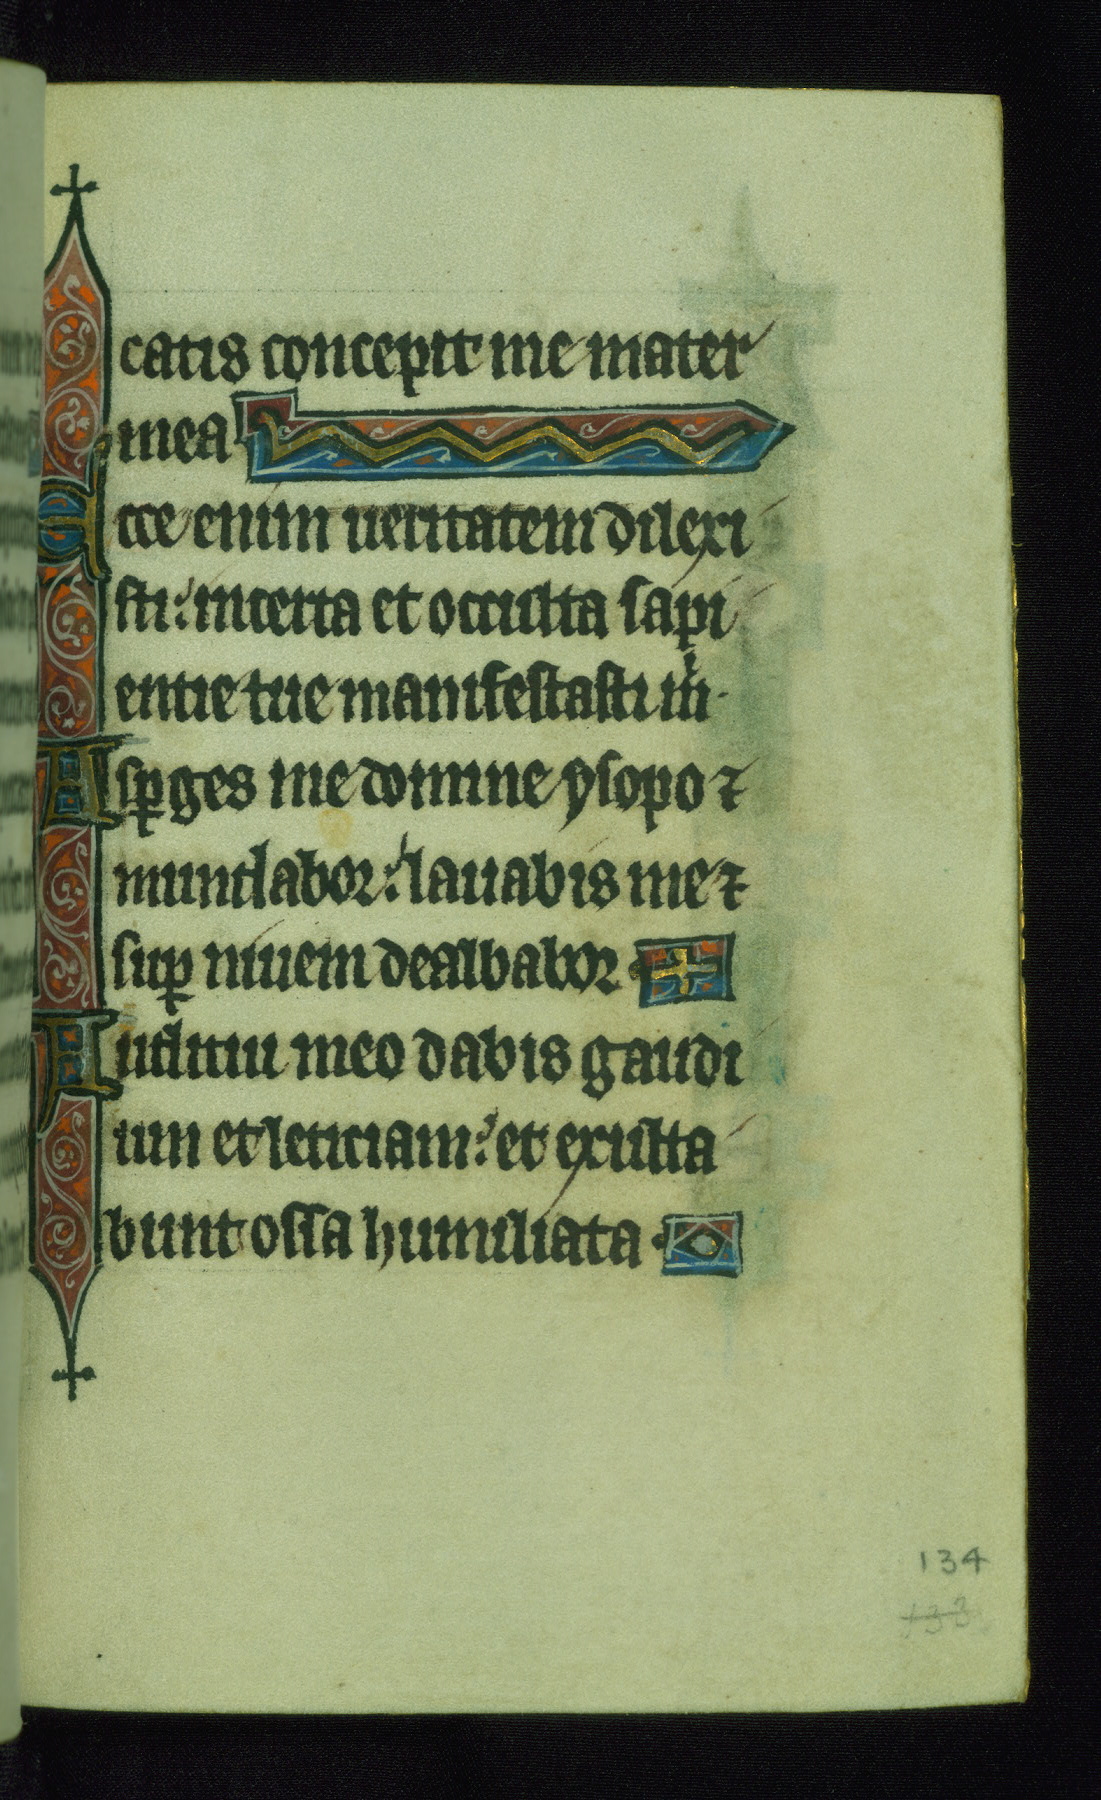 catis concepit me mater
mea
Ecce enim ueritatem dilexi
sti: incerta et occulta sapi
entie tue manifestasti m̓.
Asꝑges me domine ysopo ⁊
mundabor: lauabis me ⁊
suꝑ niuem dealbabor
Auditui meo dabis gaudi
um et leticiam: et exulta
bunt ossa humiliata.
134
133